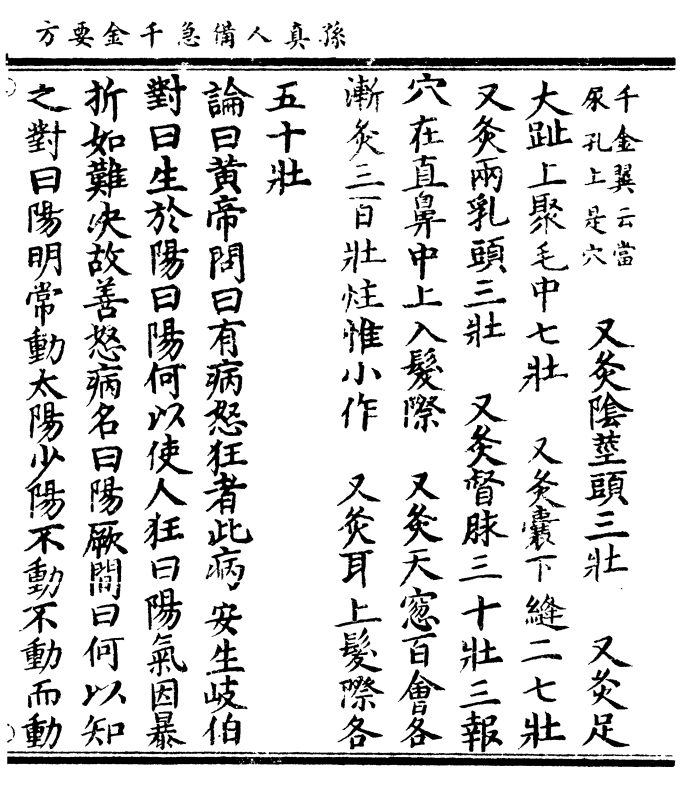 孫真人備急千金要方
千金翼云當
尿孔上是穴
又灸陰莖頭三壯　又灸足
大趾上聚毛中七壯　又灸囊下縫二七壯
又灸兩乳頭三壯　又灸督脉三十壯三報
穴在直鼻中上入髮際　又灸天窓百會各
漸灸三百壯炷惟小作　又灸耳上髮際各
五十壯
論曰黃帝問曰有病怒狂者此病安生岐伯
對曰生於陽曰陽何以使人狂曰陽氣因暴
折如難决故善怒病名曰陽厥問曰何以知
之對曰陽明常動太陽少陽不動不動而動